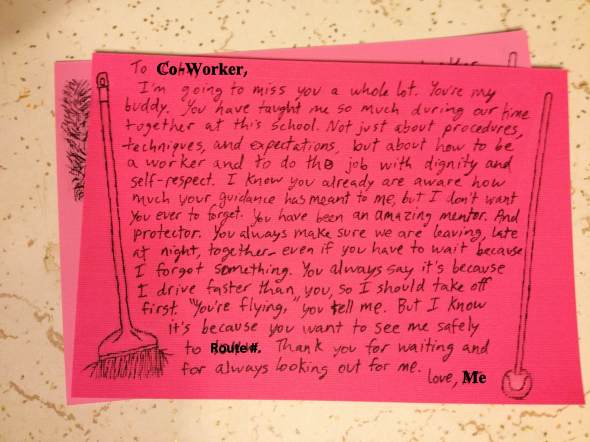 To Co-Worker,
I'm going to miss you a whole lot. You're my
buddy. You have taught me so much during our time
together at this school. Not just about procedures,
techniques, and expectations, but about how to be
a worker and to do the job with dignity and
self-respect. I know you already are aware how
much your guidance has meant to me, but I don't want
you ever to forget. You have been an amazing mentor. And
protector. You always make sure we are leaving, late
at night, together - even if you have to wait because
I forgot something. You always say it's because
I drive faster than you, so I should take off
first. "You're flying," you tell me. But I know
it's because you want to see me safely
to Route #. Thank you for waiting and
for always looking out for me.
Love, Me